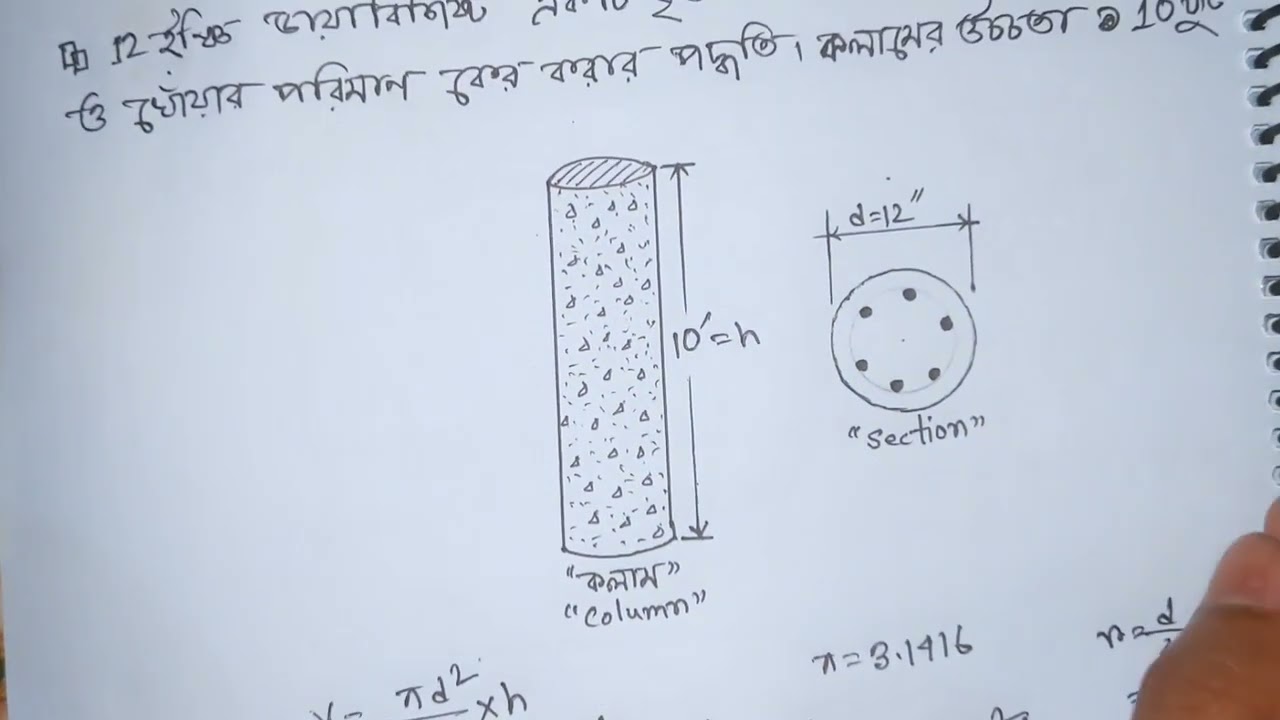 12 ইঞ্চি ডায়াবিশিষ্ট
ও খোঁয়ার পরিমান বের করার পদ্ধতি। কলামের উচ্চতা 10
d=12"
10'=h
"section"
"কলাম"
"column"
π=3.1416
V= πd² ×h